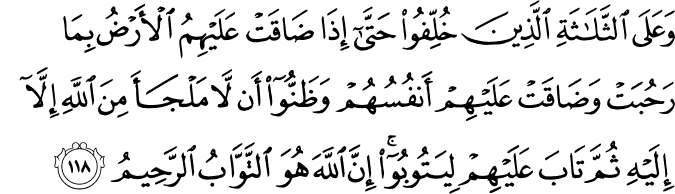 وَعَلَى ٱلثَّلَٰثَةِ ٱلَّذِينَ خُلِّفُوا۟ حَتَّىٰٓ إِذَا ضَاقَتْ عَلَيْهِمُ ٱلْأَرْضُ بِمَا
رَحُبَتْ وَضَاقَتْ عَلَيْهِمْ أَنفُسُهُمْ وَظَنُّوٓا۟ أَن لَّا مَلْجَأَ مِنَ ٱللَّهِ إِلَّآ
إِلَيْهِ ثُمَّ تَابَ عَلَيْهِمْ لِيَتُوبُوٓا۟ ۚ إِنَّ ٱللَّهَ هُوَ ٱلتَّوَّابُ ٱلرَّحِيمُ ١١٨